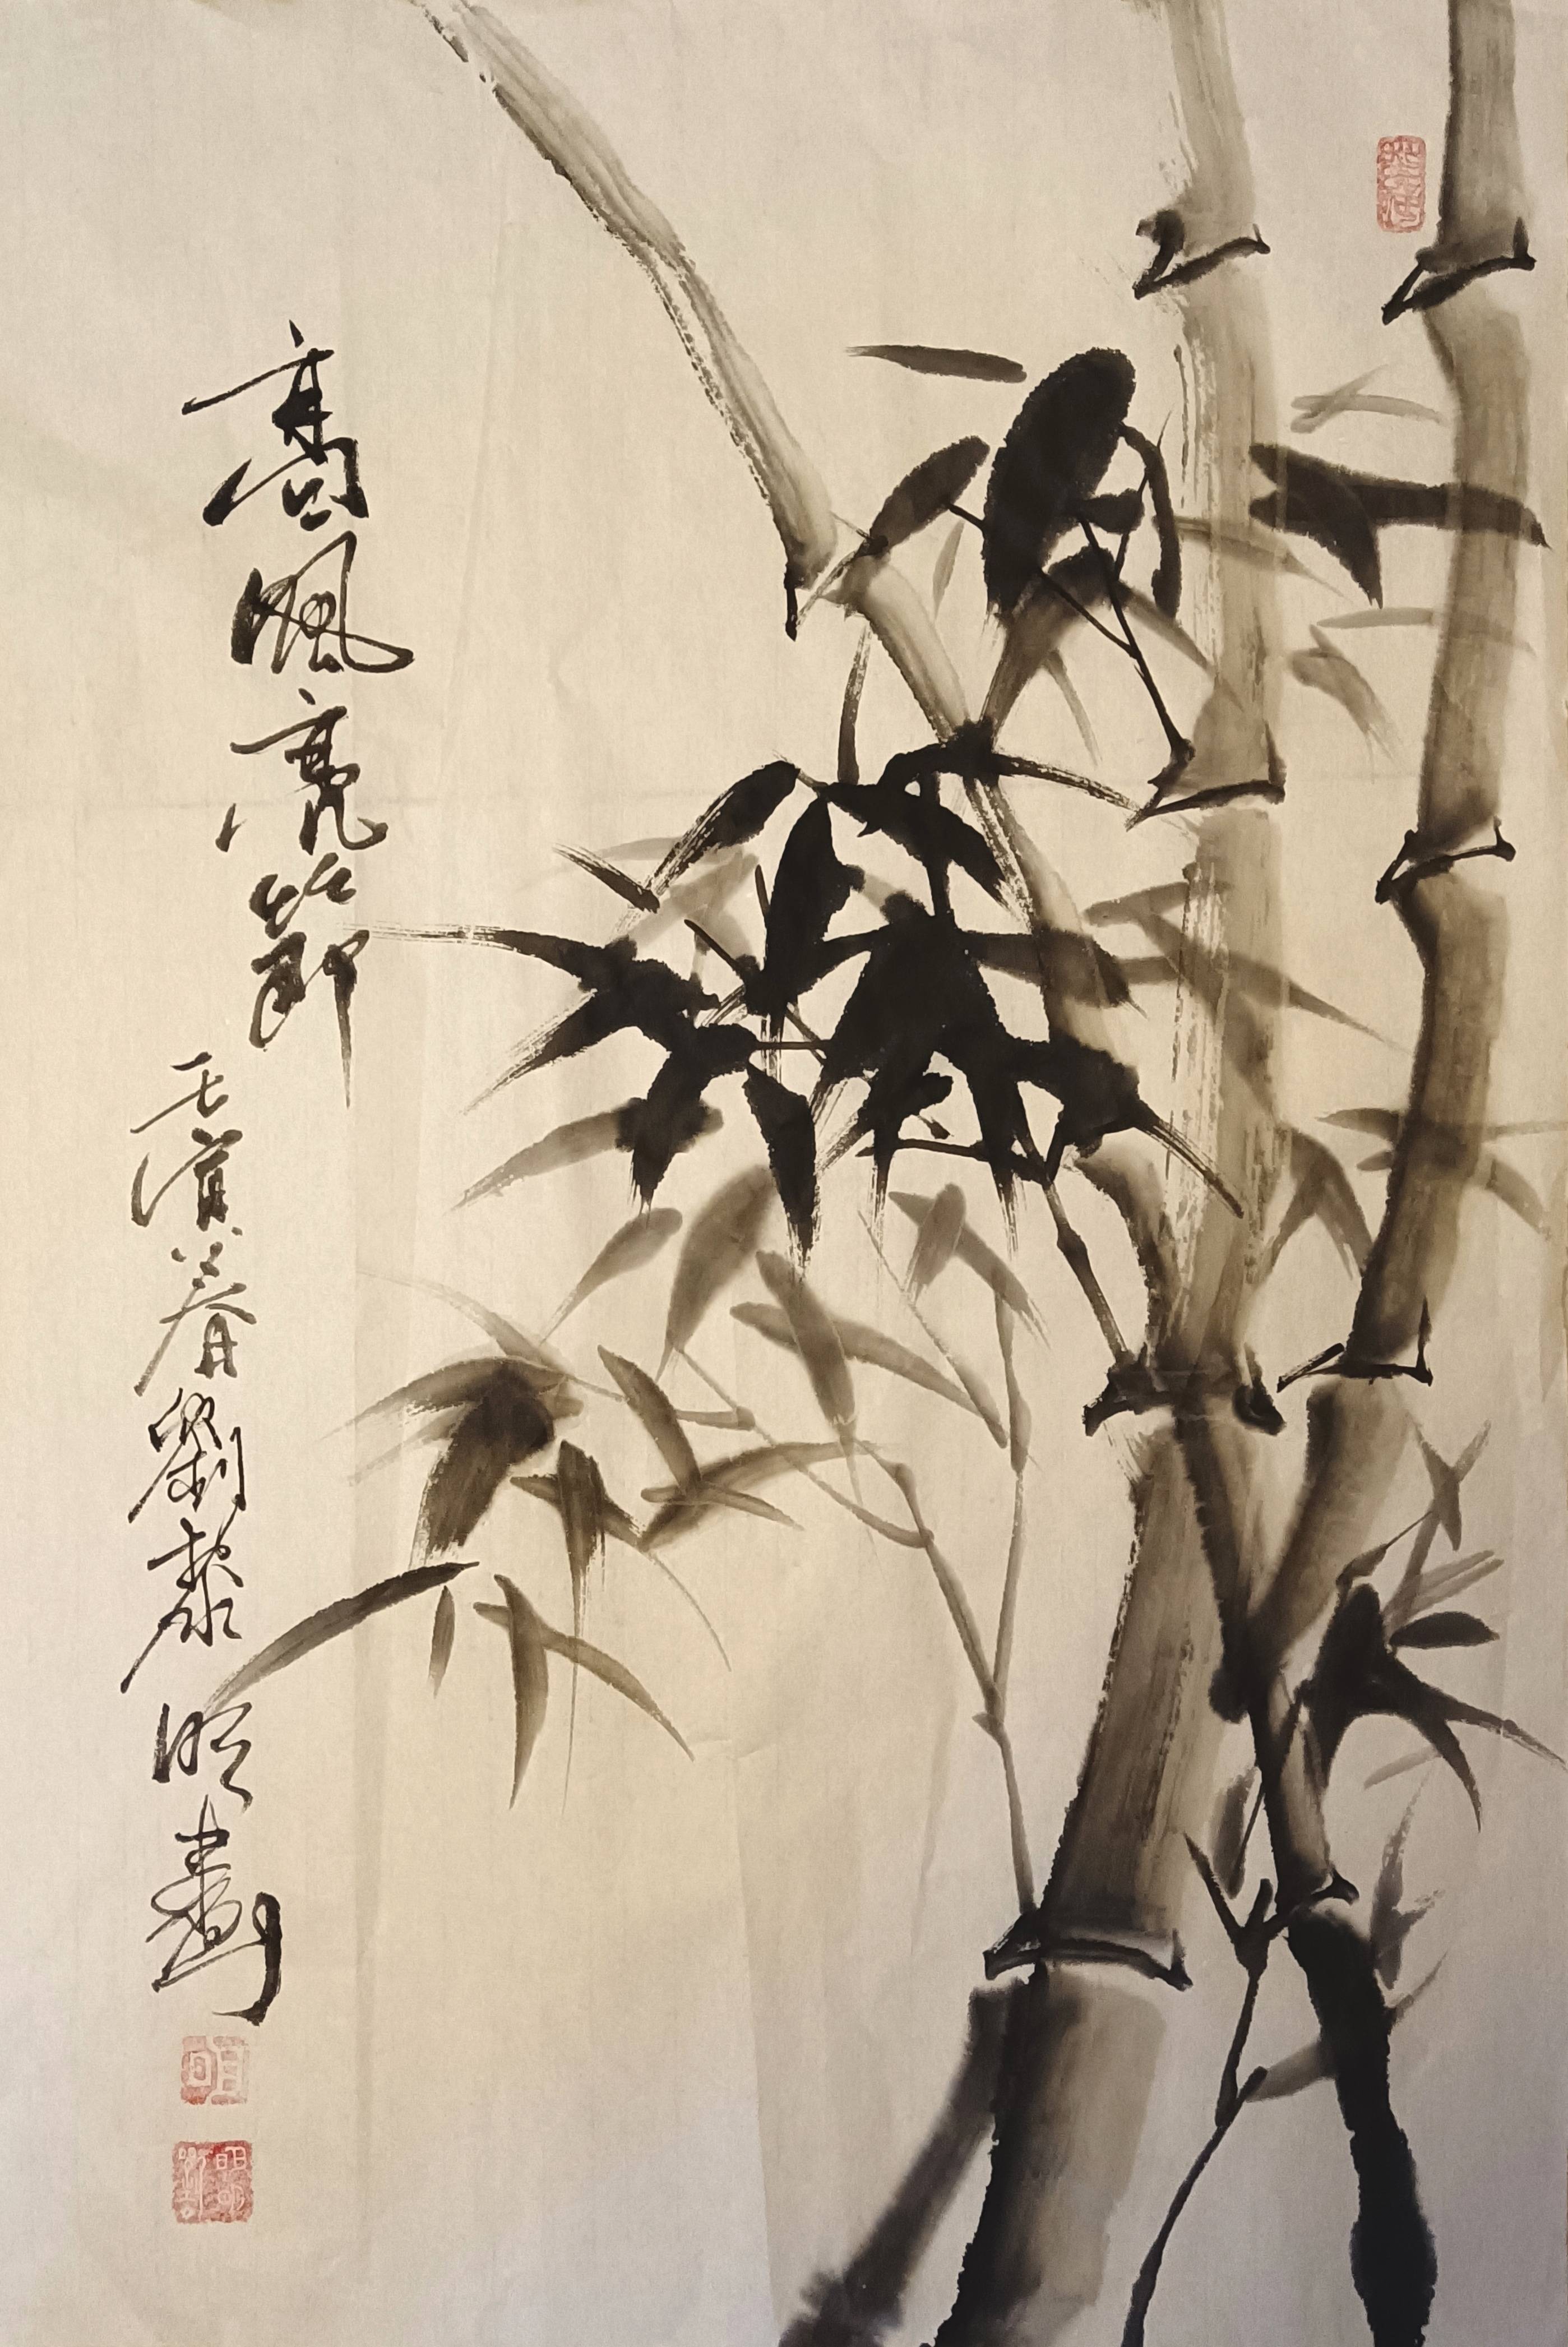 高風亮節
壬寅春劉黎明畫